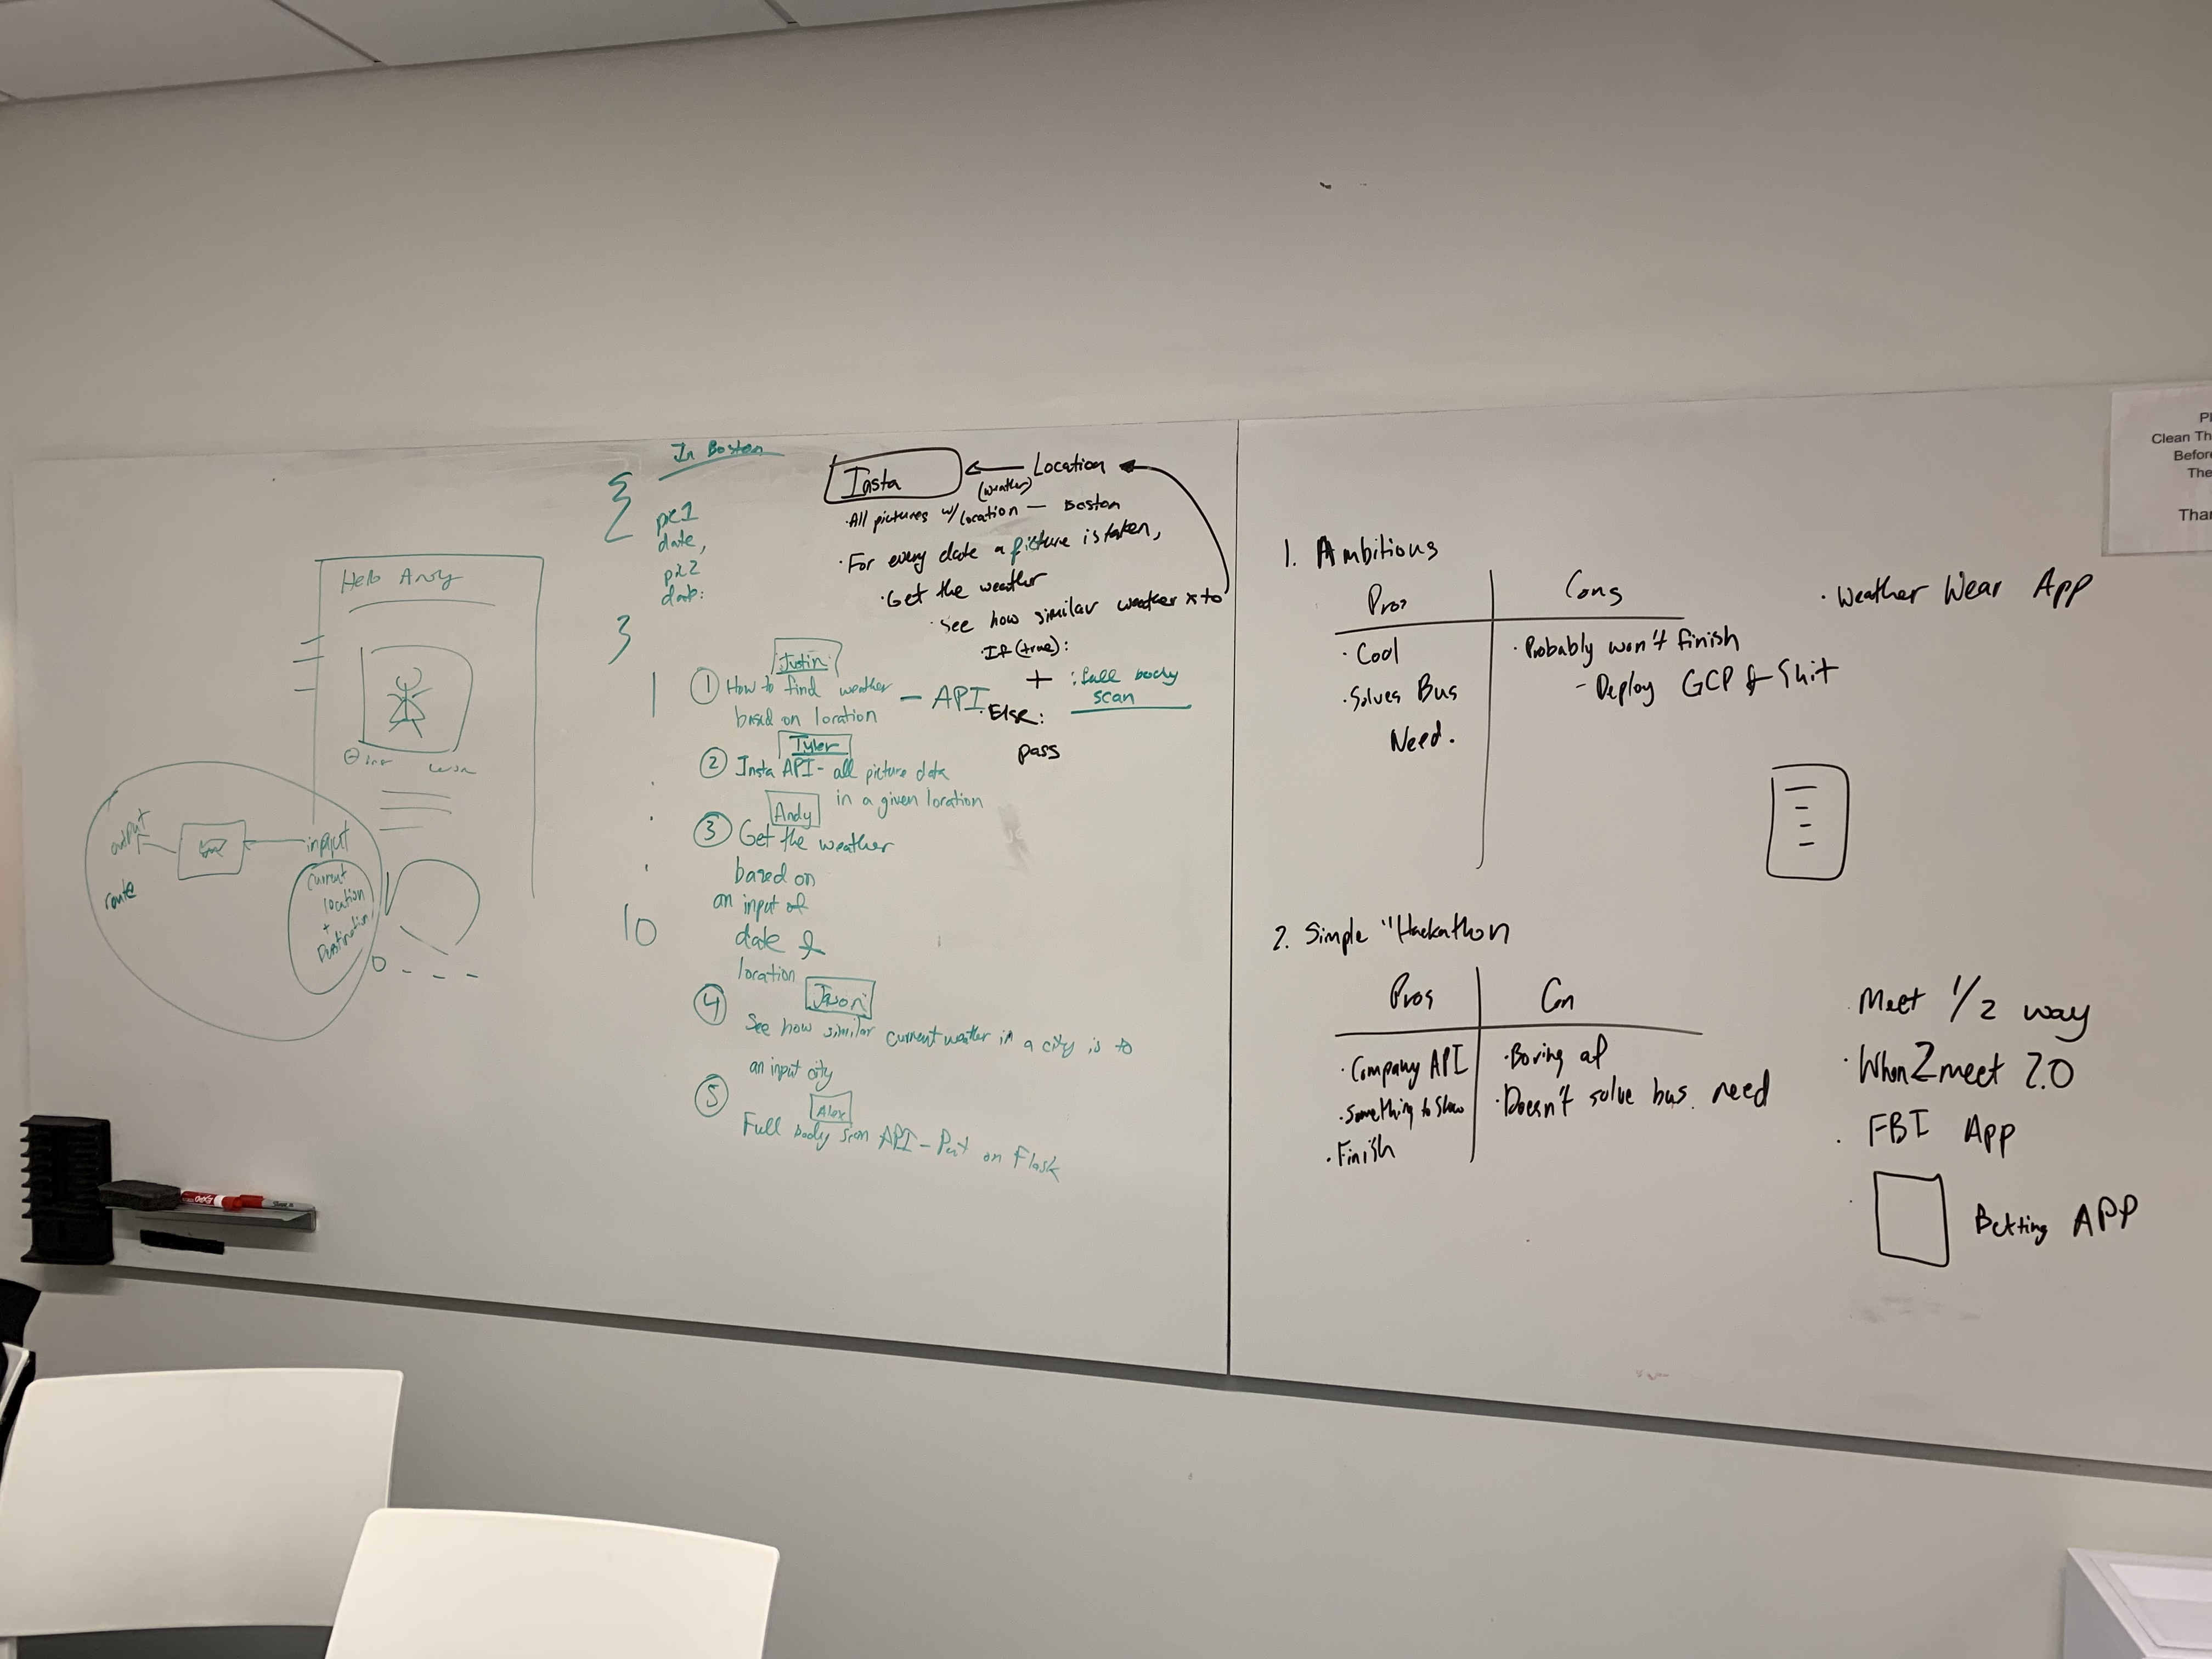 In Boston
{
pic1
date,
pic2
date:
}
Insta
Location
(weather)
· All pictures w/ location — Boston
· For every date a picture is taken,
· Get the weather
· See how similar weather x to
· If (true):
+ : full body
scan
Else:
pass
Hello Andy
output
input
route
Current
location
+
Destination
1
10
Justin
① How to find weather — API
based on location
Tyler
② Insta API - all picture data
in a given location
Andy
③ Get the weather
based on
an input of
date &
location
Jason
④ See how similar current weather in a city is to
an input city
Alex
⑤ Full body scan API - Put on Flask
1. Ambitious
Pros
Cons
· Cool
· Solves Bus
Need.
· Probably won't finish
- Deploy GCP & Shit
· Weather Wear App
2. Simple "Hackathon
Pros
Con
· Company API
· Something to Show
· Finish
· Boring af
· Doesn't solve bus. need
· Meet 1/2 way
· When2meet 2.0
· FBI App
· Betting APP
Pl
Clean Th
Before
The
Than
EXPO